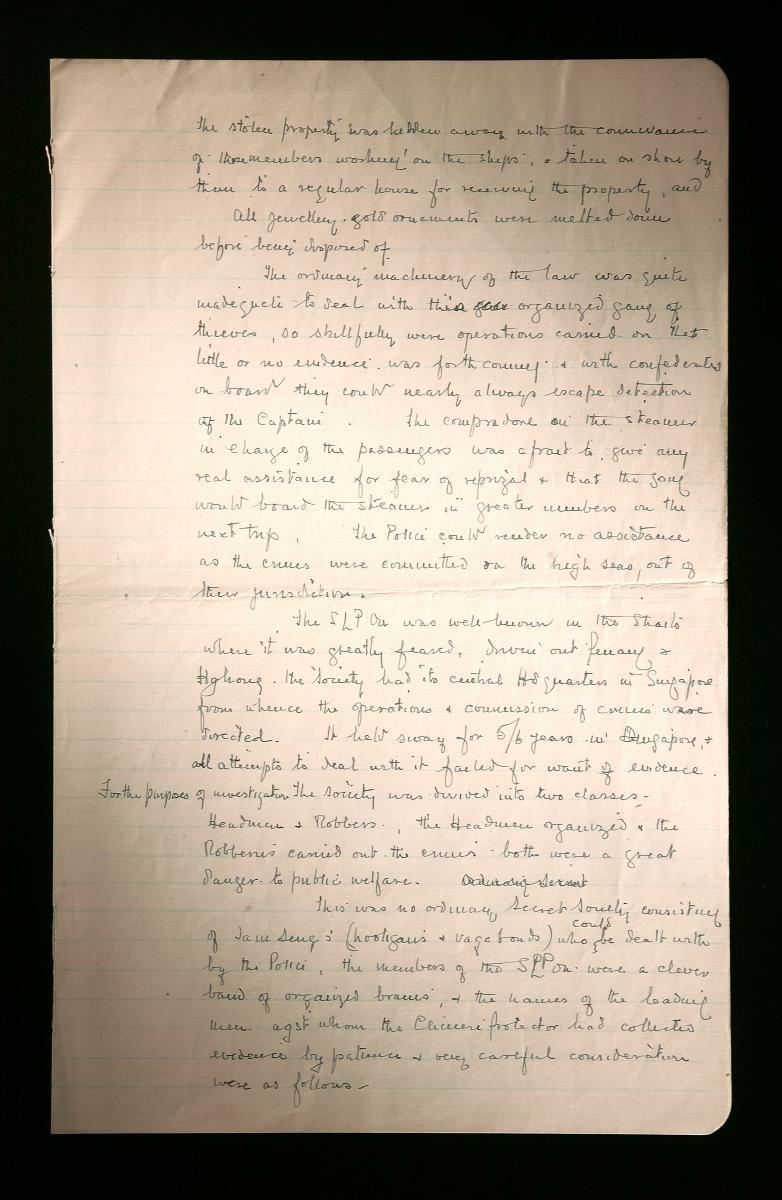 The stolen property was hidden away with the connivance
of the members working on the ships, & taken on shore by
them to a regular house for receiving the property, and
all jewellery. gold ornaments were melted down
before being disposed of
The ordinary machinery of the law was quite
inadequate to deal with this organized gang of
thieves, so skillfully were operations carried on that
little or no evidence was forthcoming & with confederates
on board they could nearly always escape detection
of the Captain. The compradore on the steamer
in charge of the passengers was afraid to give any
real assistance for fear of reprizal & that the gang
would board the steamer in greater numbers on the
next trip. The Police could render no assistance
as the crimes were committed on the high seas, out of
their jurisdiction.
The SLP On was well-known in the Straits
where it was greatly feared, driven out Penang &
Hgkong. the Society had its central Hdquarters in Singapore
from whence the operations & commission of crimes were
directed. It held sway for 5/6 years in Singapore, &
all attempts to deal with it failed for want of evidence.
For the purposes of investigation The Society was divided into two classes -
Headmen & Robbers., the Headmen organized & the
Robberies carried out the crimes both were a great
danger to public welfare. Ordinary Secret
This was no ordinary Secret Society consisting
of Sam Sengs (hooligans & vagabonds) who could be dealt with
by the Police, the members of the SLP On were a clever
band of organized brains, & the names of the leading
men agst whom the Chinese Protector had collected
evidence by patience & very careful consideration
were as follows -